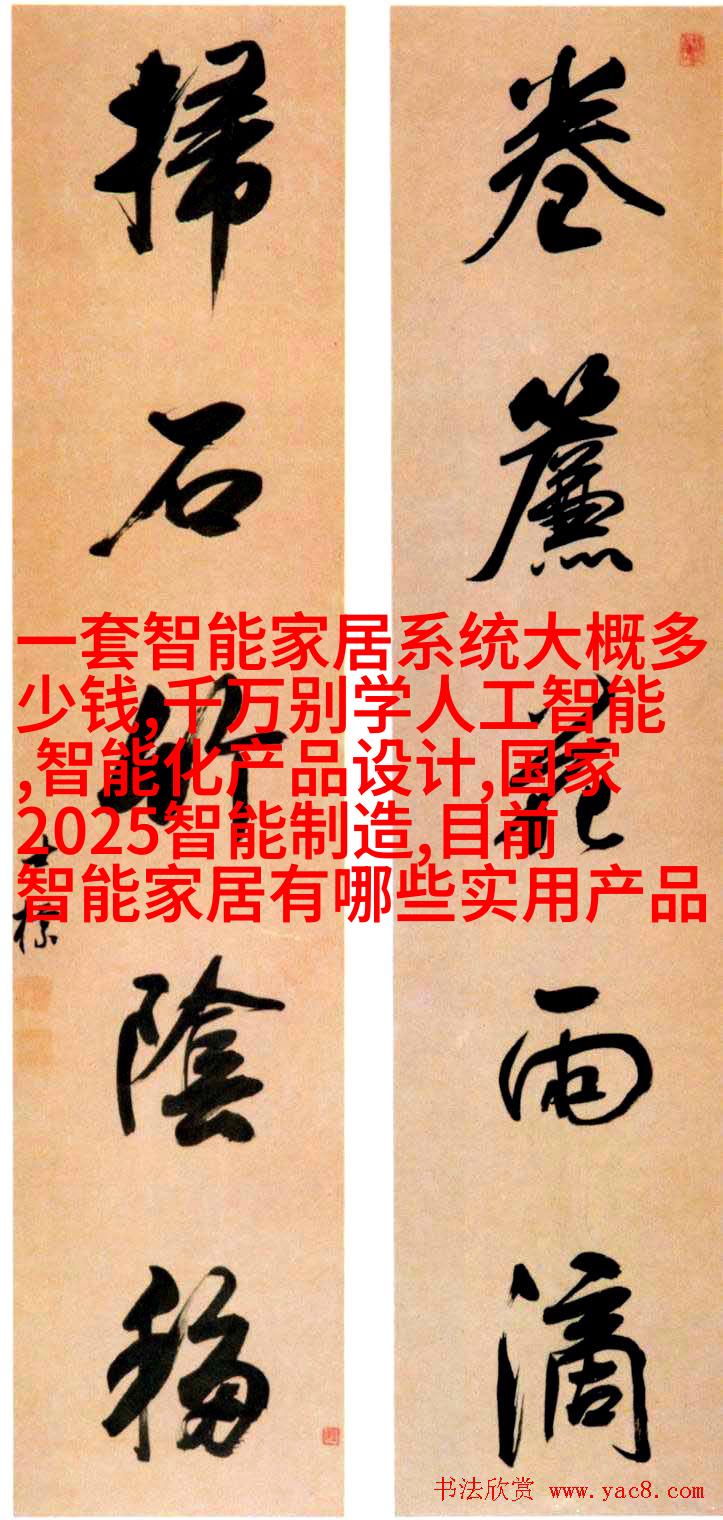 卷簾花雨滴
掃石竹陰移
士標
一套智能家居系统大概多
少钱,千万别学人工智能
,智能化产品设计,国家
2025智能制造,目前
智能家居有哪些实用产品
书法欣赏 www.yac8.com